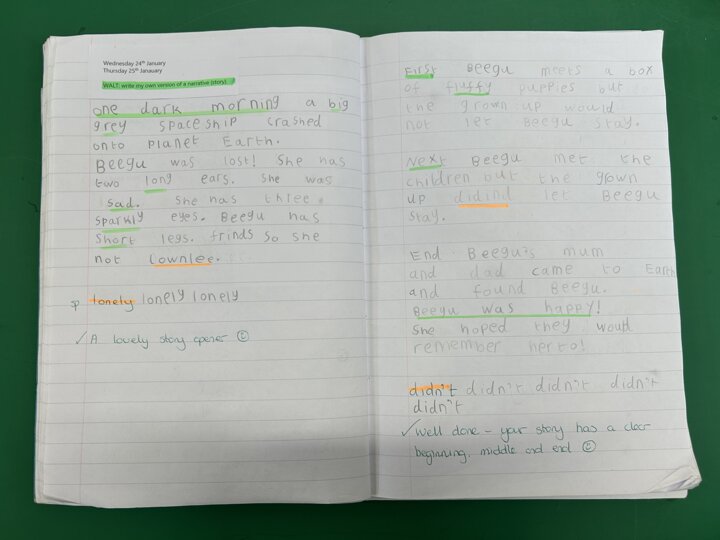 Wednesday 24th January
Thursday 25th Janauary
WALT: write my own version of a narrative (story).
one dark morning a big
grey spaceship crashed
onto Planet Earth.
Beegu was lost! She has
two long ears. She was
sad. She has three
sparkly eyes. Beegu has
short legs. frinds so she
not lownlee.
sp lonely lonely lonely
✓ A lovely story opener ☺
First Beegu meets a box
of fluffy puppies but
the grown up would
not let Beegu stay.
Next Beegu met the
children but the grown
up didind let Beegu
stay.
End Beegu's mum
and dad came to Earth
and found Beegu.
Beegu was happy!
She hoped they would
remember her to!
didn't didn't didn't didn't
didn't
✓ Well done - your story has a clear
beginning, middle and end ☺